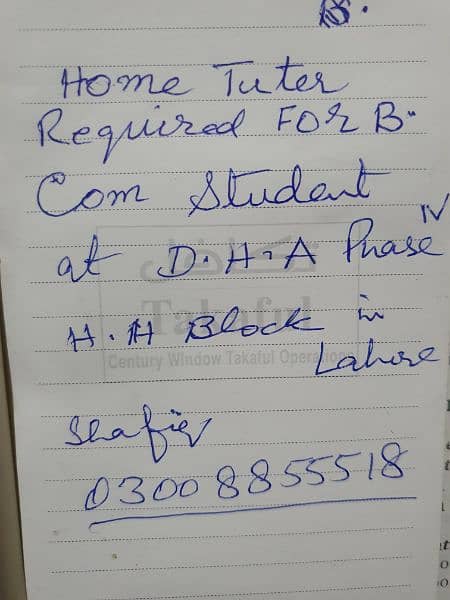 Home Tuter
Required FOR B.
Com Student
at D.H.A Phase IV
تكافل
Takaful
H.H Block in
Century Window Takaful Operations
Lahore
Shafiq
0300 8855518